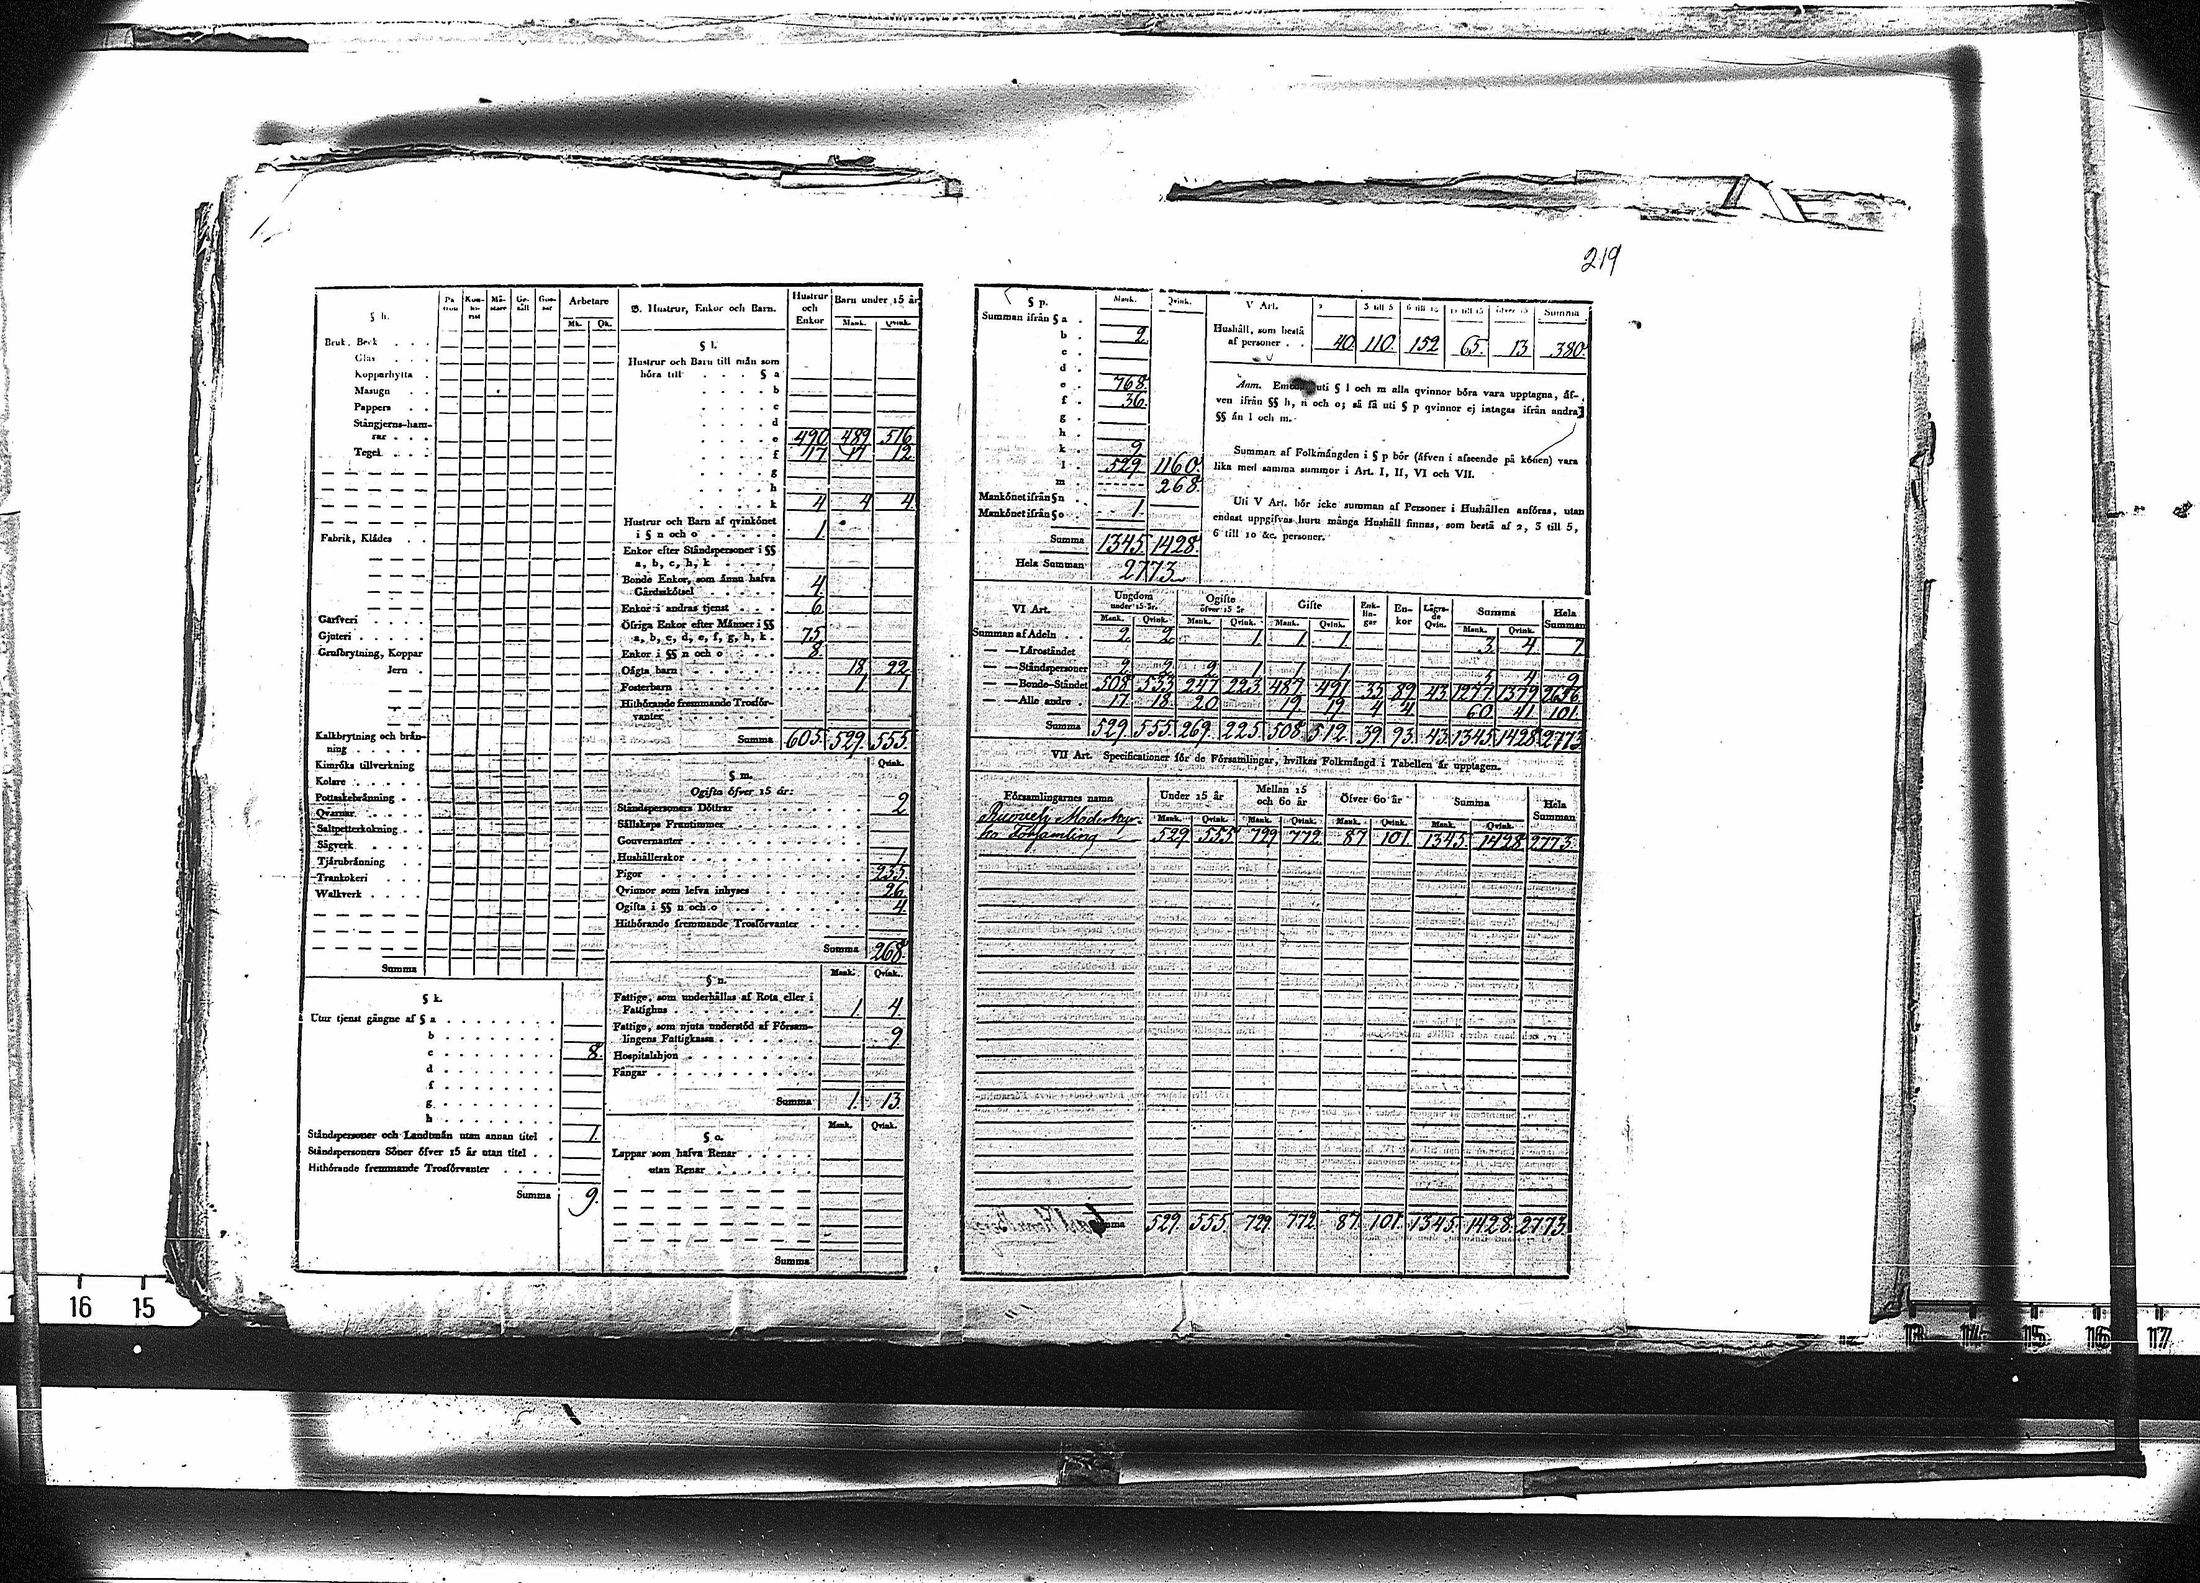 219
§ h.
Pa tron
Mä- stare
Ge- säll
Gos- sar
Arbetare
Mk. Qk.
Bruk, Beck . . .
Glas . . .
Kopparhytta .
Masugn . .
Pappers . .
Stångjerns-ham-
rar . . .
Tegel . . .
Fabrik, Klädes . .
Garfveri . . . .
Gjuteri . . . . .
Grufbrytning, Koppar
Jern .
Kalkbrytning och brän-
ning . . . . .
Kimröks tillverkning
Kolare . . . . .
Pottaskebränning . .
Qvarnar . . . .
Saltpetterkokning . .
Sågverk . . . .
Tjärubränning . .
Trankokeri . . .
Walkverk . . . .
Summa
§ k.
Utur tjenst gångne af § a . . . . . . .
b . . . . . . .
c . . . . . . . 8.
d . . . . . . .
f . . . . . . .
g . . . . . . .
h . . . . . . .
Ståndspersoner och Landtmän utan annan titel . 1.
Ståndspersoners Söner öfver 15 år utan titel . .
Hithörande fremmande Trosförvanter . . . .
Summa 9.
B. Hustrur, Enkor och Barn.
Hustrur och Enkor
Barn under 15 år
Mank. Qvink.
§ l.
Hustrur och Barn till män som
höra till . . . . § a
. . . . b
. . . . c
. . . . d
. . . . e 490 489 516
. . . . f 17 17 12
. . . . g
. . . . h
. . . . k 4 4 4
Hustrur och Barn af qvinkönet
i § n och o . . . . . 1.
Enkor efter Ståndspersoner i §§
a, b, c, h, k . . . .
Bonde Enkor, som ännu hafva
Gårdsskötsel . . . . . 4
Enkor i andras tjenst . . . 6
Öfriga Enkor efter Männer i §§
a, b, c, d, e, f, g, h, k . 75
Enkor i §§ n och o . . . . 8.
Oägta barn . . . . . . 18. 22.
Fosterbarn . . . . . . 1 1
Hithörande fremmande Trosför-
vanter . . . . . . .
Summa 605. 529. 555.
§ m. Qvink.
Ogifta öfver 15 år:
Ståndspersoners Döttrar . . . . . . 2
Sällskaps Fruntimmer . . . . . . .
Gouvernanter . . . . . . . . .
Hushållerskor . . . . . . . . . 1.
Pigor . . . . . . . . . . . 235
Qvinnor som lefva inhyses . . . . . 26
Ogifta i §§ n och o . . . . . . . 4.
Hithörande fremmande Trosförvanter . . . .
Summa 268.
§ n. Mank. Qvink.
Fattige, som underhållas af Rota eller i
Fattighus . . . . . . . . 1. 4.
Fattige, som njuta understöd af Försam-
lingens Fattigkassa . . . . . . 9.
Hospitalshjon . . . . . . . .
Fångar . . . . . . . . . .
Summa 1. 13.
§ o. Mank. Qvink.
Lappar som hafva Renar . . . .
utan Renar . . . . .
Summa
§ p. Mank. Qvink.
Summan ifrån § a .
b . 2.
c .
d .
e . 768.
f . 36.
g .
h .
k . 9.
l . 529. 1160.
m . 268.
Mankönet ifrån § n . 1.
Mankönet ifrån § o .
Summa 1345. 1428.
Hela Summan 2773.
V Art. 2 3 till 5 6 till 10 11 till 15 öfver 15 Summa
Hushåll, som bestå
af personer . . 40. 110. 152 65. 13. 380.
uti § l och m alla qvinnor böra vara upptagna, äf-
ven ifrån §§ h, n och o; så få uti § p qvinnor ej intagas ifrån andra
§§ än l och m.
Summan af Folkmängden i § p bör (äfven i afseende på könen) vara
lika med samma summor i Art. I, II, VI och VII.
Uti V Art. bör icke summan af Personer i Hushållen anföras, utan
endast uppgifvas huru många Hushåll finnas, som bestå af 2, 3 till 5,
6 till 10 &c. personer.
VI Art.
Ungdom under 15 år. Ogifte öfver 15 år Gifte Enk- lin- gar En- kor Lägra- de Qvin. Summa Hela Summan
Mank. Qvink. Mank. Qvink. Mank. Qvink. Mank. Qvink.
Summan af Adeln . . 2. 2. 1. 1. 1. 3. 4. 7.
— — Läroståndet
— — Ståndspersoner 2. 2. 2. 1. 1. 1. 5. 4. 9
— — Bonde-Ståndet 508. 533. 247. 223. 487. 491. 35. 89. 43. 1277. 1379. 2656
— — Alle andre . 17. 18. 20. 19. 19. 4 4 60. 41. 101.
Summa 529. 555. 269. 225. 508. 512. 39. 93. 43. 1345. 1428. 2773
VII Art. Specificationer för de Församlingar, hvilkas Folkmängd i Tabellen är upptagen.
Församlingarnes namn Under 15 år Mellan 15 och 60 år Öfver 60 år Summa Hela Summan
Mank. Qvink. Mank. Qvink. Mank. Qvink. Mank. Qvink.
Ruovesi Moderkyr-
ko Församling 529. 555. 729. 772. 87. 101. 1345. 1428. 2773.
Summa 529. 555. 729. 772. 87. 101. 1345. 1428. 2773.
16 15
13 14 15 16 17